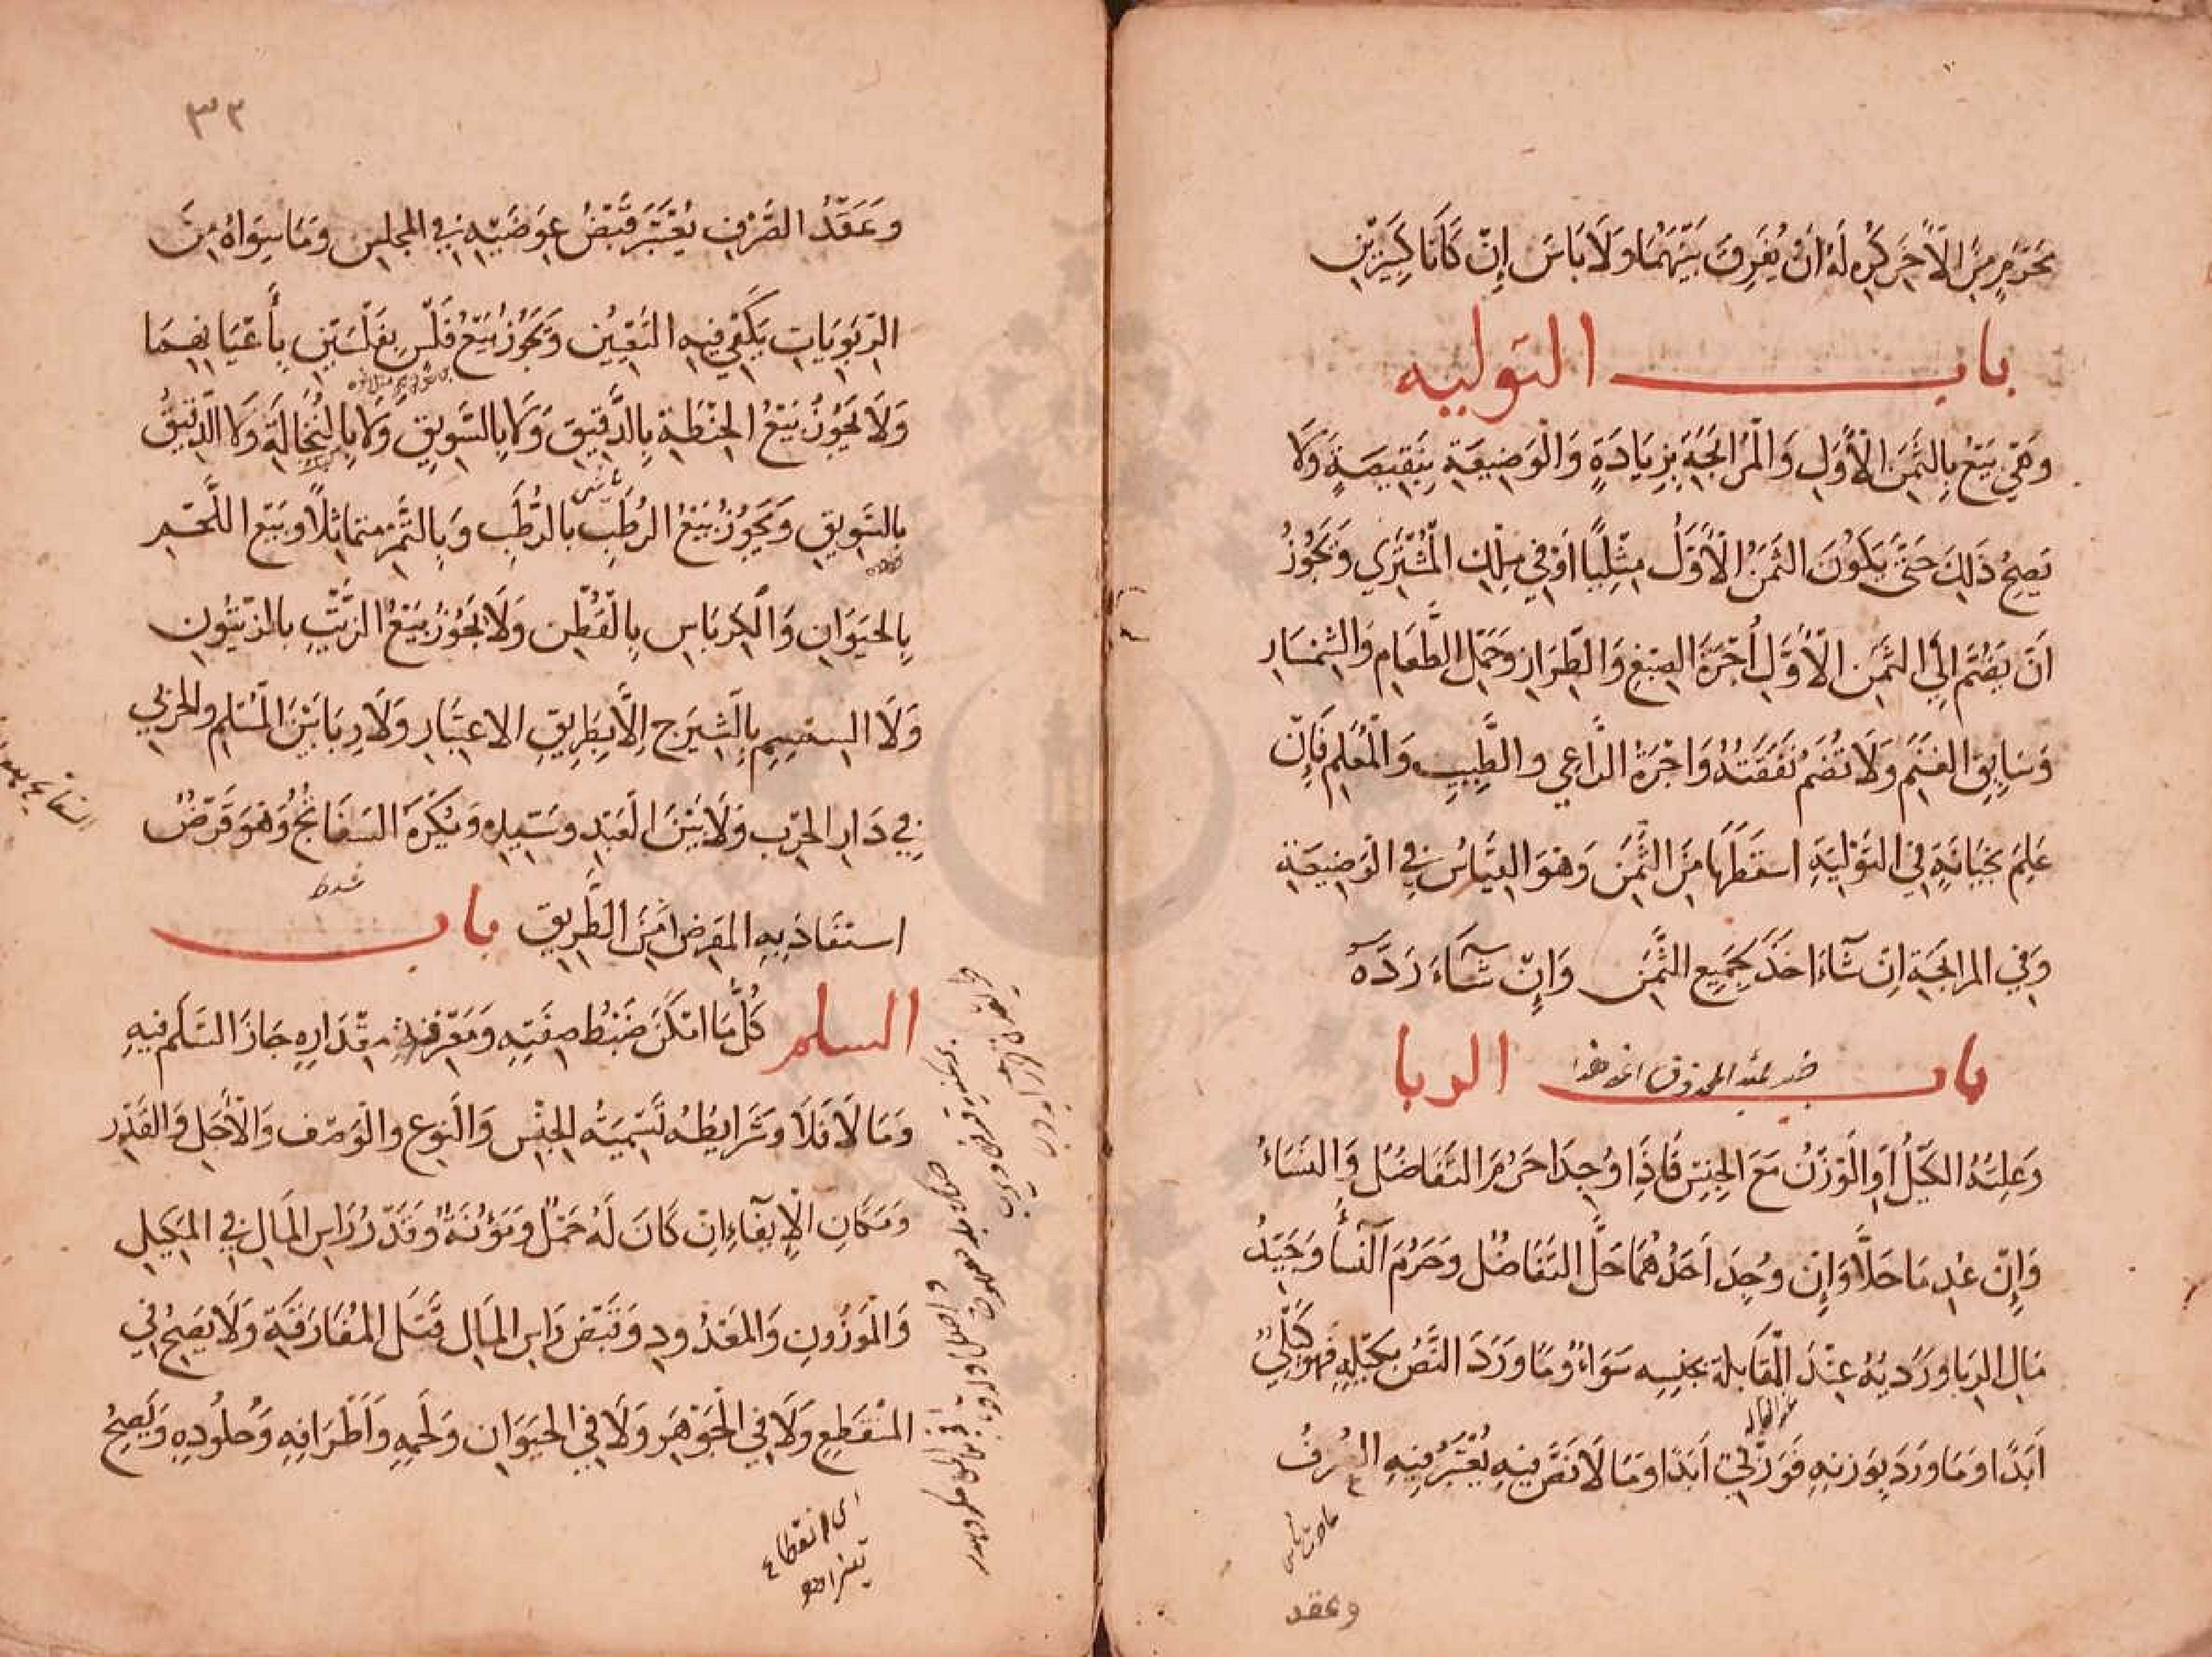 محرم من الآخر كره له أن يفرق بينهما ولا باس إن كانا كبيرين
باب التوليه
وهي بيع بالثمن الأول والمرابحة بزيادة والوضيعة بنقيصة ولا
يصح ذلك حتى يكون الثمن الأول مثليا او في ملك المشتري ويجوز
ان يضم الى الثمن الأول أجرة الصبغ والطراز وحمل الطعام والسمسار
وسايق الغنم ولا تضم نفقته واجرة الراعي والطبيب والمعلم فإن
علم بخيانة في التولية اسقطها من الثمن وهو القياس في الوضيعة
وفي المرابحة ان شاء اخذ بجميع الثمن وإن شاء رده
باب الربا
وعلته الكيل او الوزن مع الجنس فاذا وجدا حرم التفاضل والنساء
وإن عدما حلا وإن وجد احدهما حل التفاضل وحرم النسأ وجيد
مال الربا ورديه عند المقابلة بجنسه سواء وما ورد النص بكيله فهو كيلي
أبدا وما ورد بوزنه فوزني أبدا وما لا نص فيه يعتبر فيه العرف
وعقد
٣٢
وعقد الصرف يعتبر قبض عوضيه في المجلس وما سواه من
الربويات يكفي فيه التعيين ويجوز بيع فلس بفلسين بأعيانهما
ولا يجوز بيع الحنطة بالدقيق ولا بالسويق ولا بالنخالة ولا الدقيق
بالسويق ويجوز بيع الرطب بالرطب وبالتمر متماثلا وبيع اللحم
بالحيوان والكرباس بالقطن ولا يجوز بيع الزيت بالزيتون
ولا السمسم بالشيرج إلا بطريق الاعتبار ولا ربا بين المسلم والحربي
في دار الحرب ولا بين العبد وسيده ويكره السفاتج وهو قرض
استفاد به المقرض امن الطريق باب
السلم كل ما امكن ضبط صفته ومعرفة مقداره جاز السلم فيه
وما لا فلا وشرايطه تسمية الجنس والنوع والوصف والأجل والقدر
ومكان الإيفاء ان كان له حمل ومؤنة وقدر راس المال في المكيل
والموزون والمعدود وقبض راس المال قبل المفارقة ولا يصح في
المنقطع ولا في الجوهر ولا في الحيوان ولحمه واطرافه وجلوده ويصح